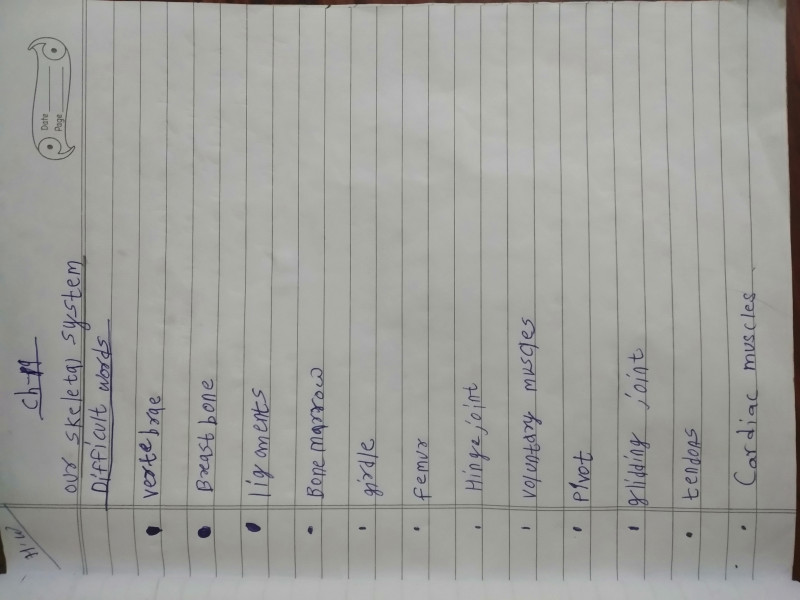 H.W
Date
Page
our skeletal system
Difficult words
vertebrae
Breast bone
ligoments
Bone marrow
girdle
femur
Hinge joint
voluntary muscles
Pivot
glidding joint
tendons
Cardiac muscles